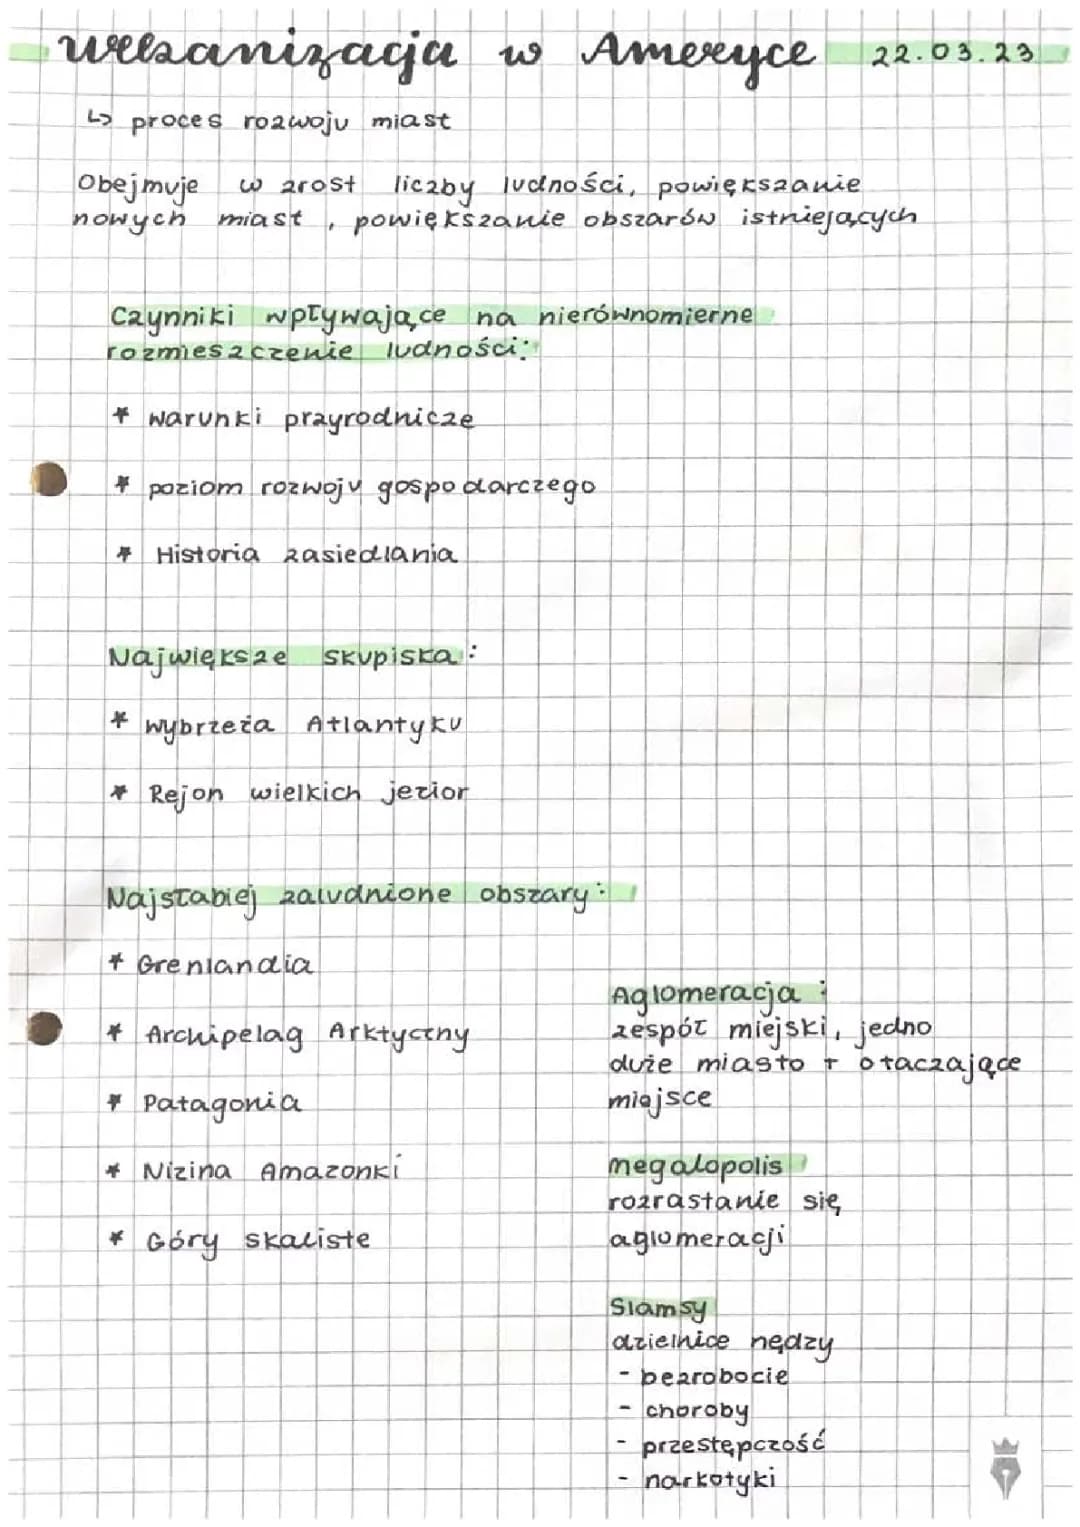 urbanizacja w Ameryce 22.03.23
↳ proces rozwoju miast
Obejmuje wzrost liczby ludności, powiększanie
nowych miast, powiększanie obszarów istniejących
Czynniki wpływające na nierównomierne
rozmieszczenie ludności:
* warunki przyrodnicze
* poziom rozwoju gospodarczego
* Historia zasiedlania
Największe skupiska:
* wybrzeża Atlantyku
* Rejon wielkich jezior
Najsłabiej zaludnione obszary:
* Grenlandia
* Archipelag Arktyczny
* Patagonia
* Nizina Amazonki
* Góry skaliste
Aglomeracja:
zespół miejski, jedno
duże miasto + otaczające
miejsce
megalopolis
rozrastanie się
aglomeracji
Slamsy
dzielnice nędzy
- bezrobocie
- choroby
- przestępczość
- narkotyki